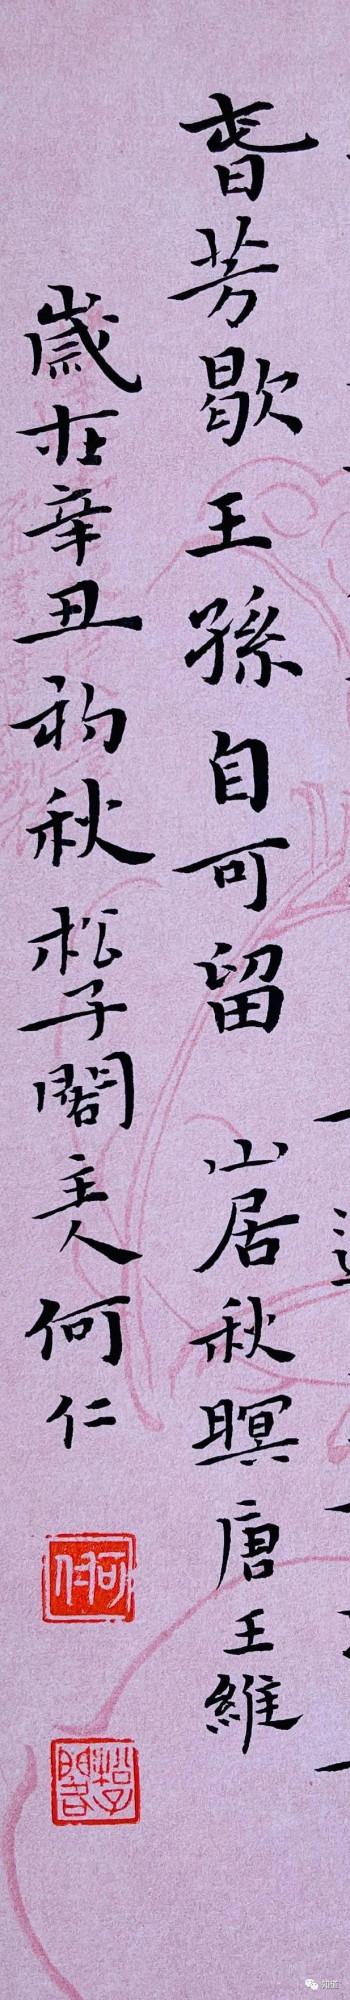 春芳歇王孫自可留 山居秋暝 唐 王維
歲在辛丑初秋 松子閣主人何仁
何仁
松子閣
知道